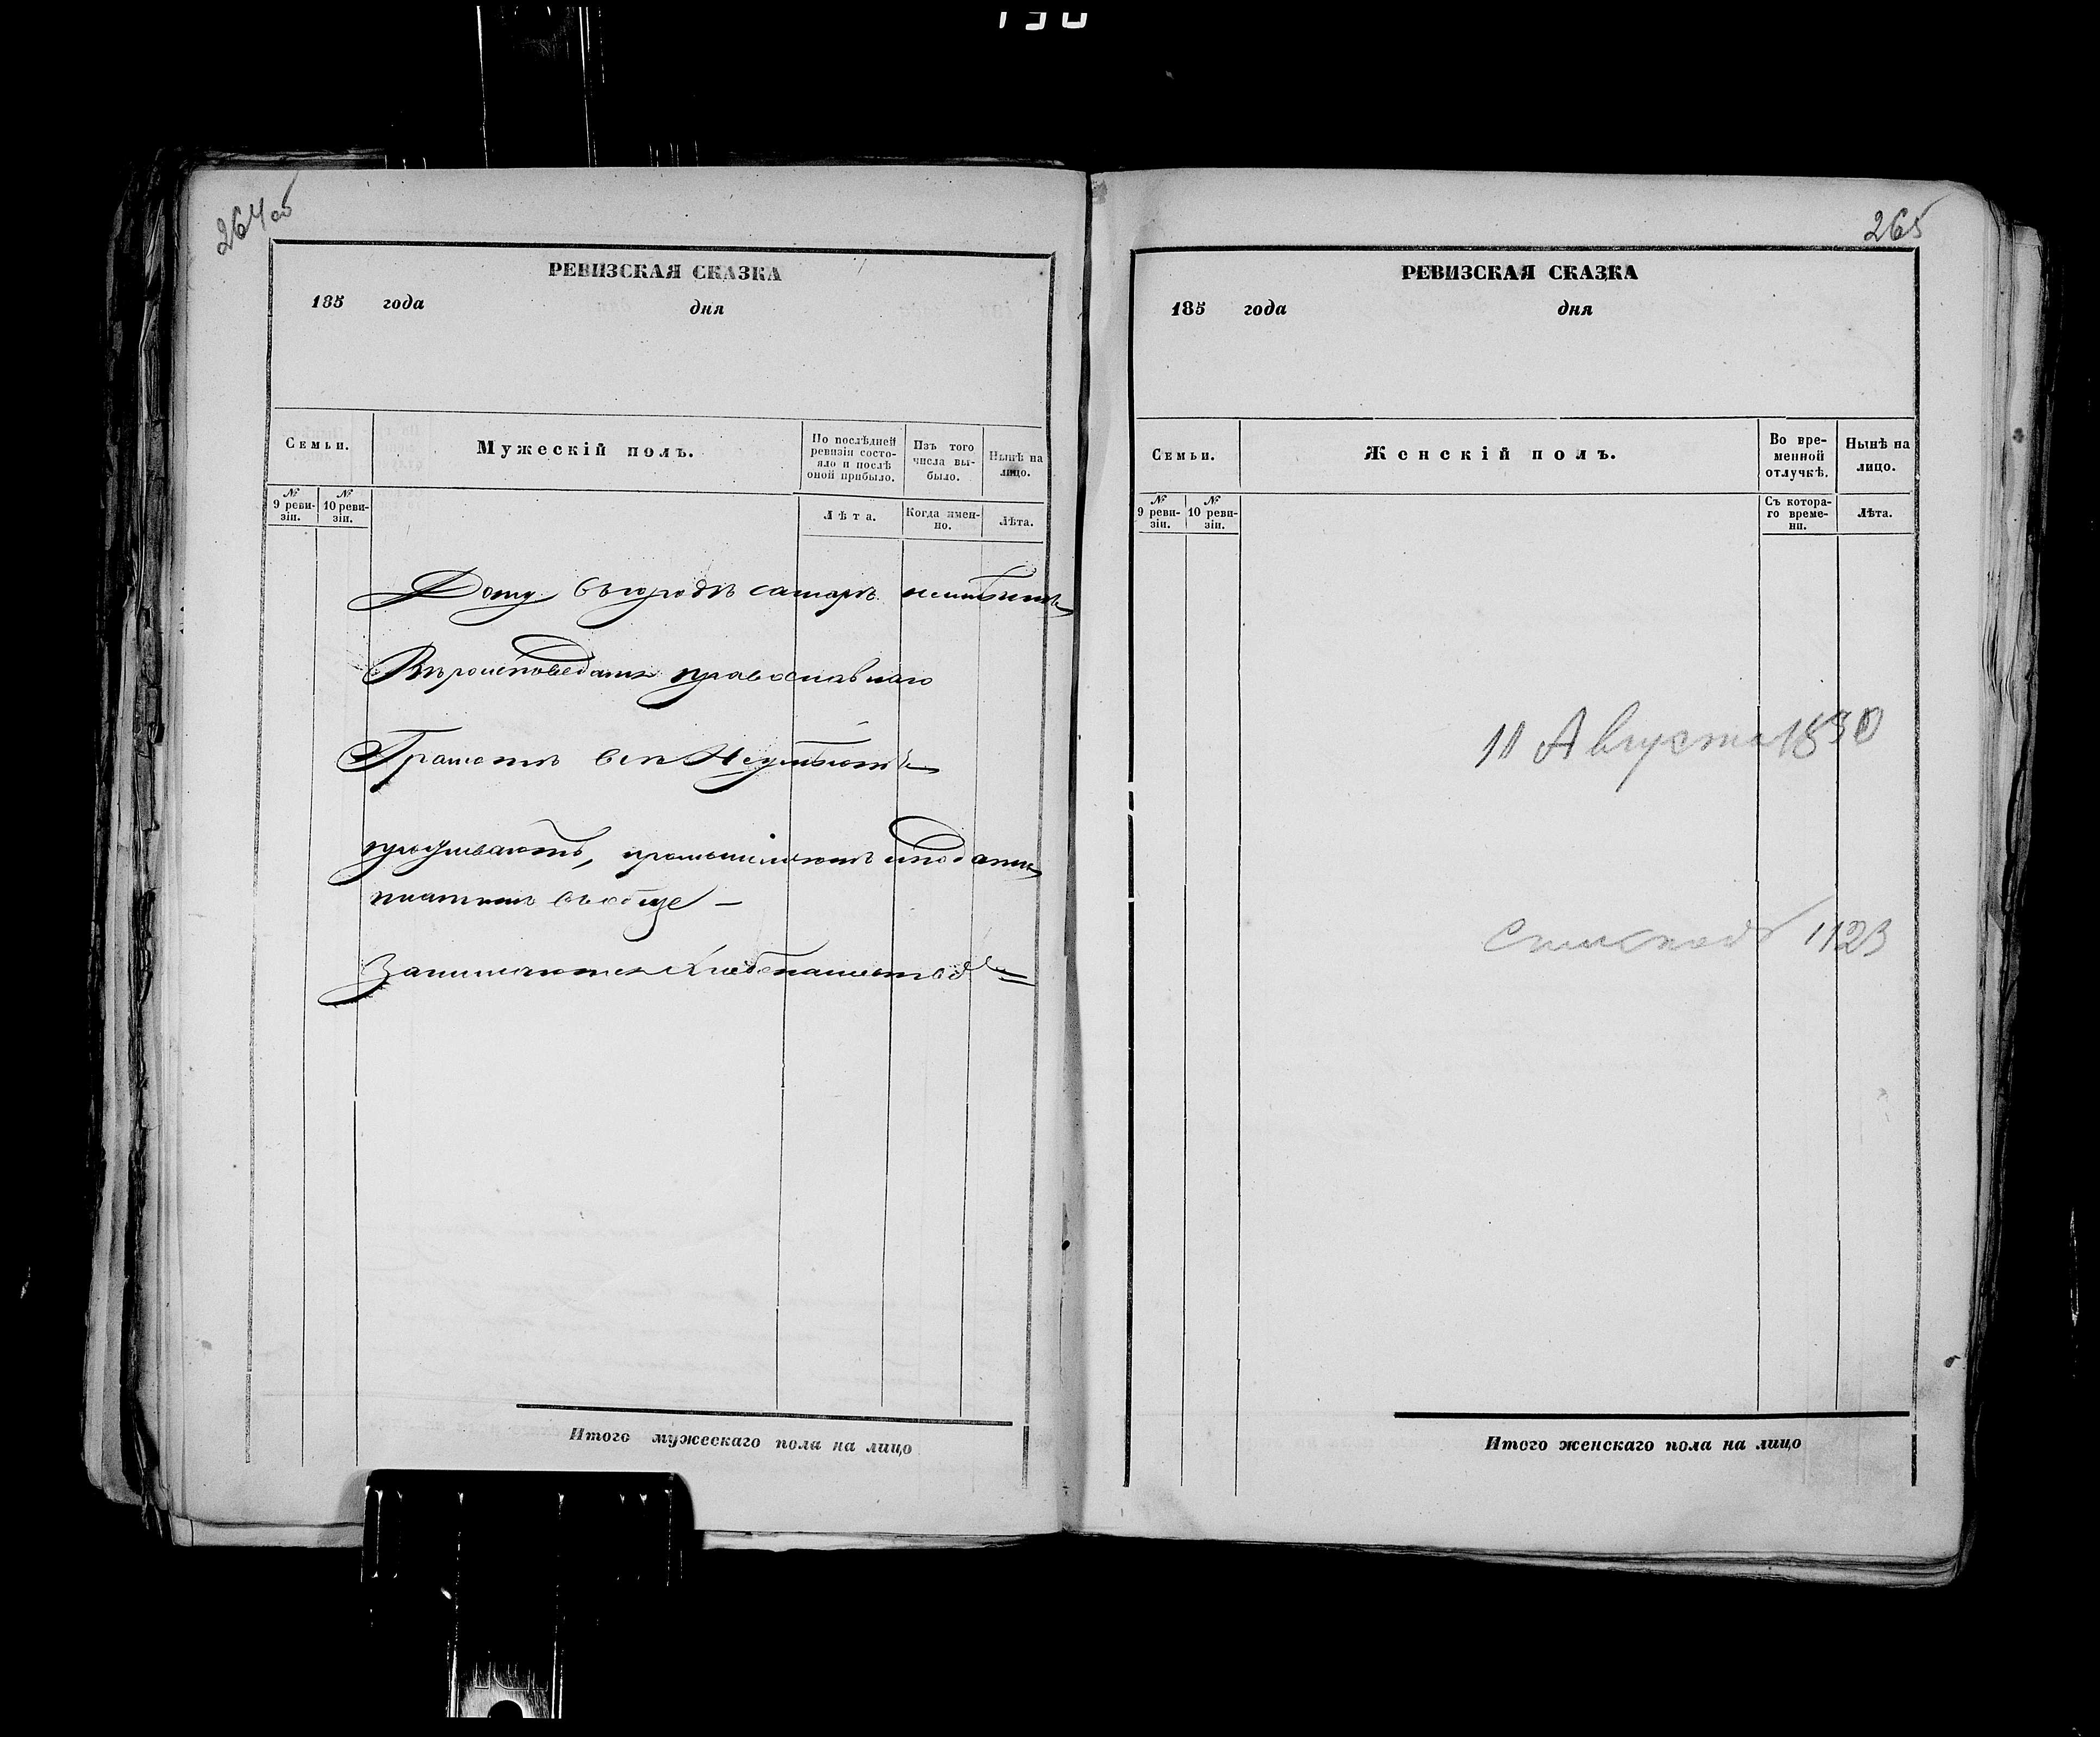 264об
РЕВИЗСКАЯ СКАЗКА
185 года дня
Семьи.
Мужескій полъ.
По послѣдней ревизіи состояло и послѣ оной прибыло.
Изъ того числа выбыло.
Нынѣ на лицо.
№ 9 ревизіи.
№ 10 ревизіи.
Лѣта.
Когда именно.
Лѣта.
Дому въ городѣ самарѣ неимѣютъ
Вѣроисповеданія православнаго
Грамотѣ всѣ Неумѣютъ
проживаютъ, промышляютъ иподати
платятъ вообще —
Занимаются Хлебопашествомъ
Итого мужескаго пола на лицо
265
РЕВИЗСКАЯ СКАЗКА
185 года дня
Семьи.
Женскій полъ.
Во временной отлучкѣ.
Нынѣ на лицо.
№ 9 ревизіи.
№ 10 ревизіи.
Съ котораго времени.
Лѣта.
Августа
1123
Итого женскаго пола на лицо